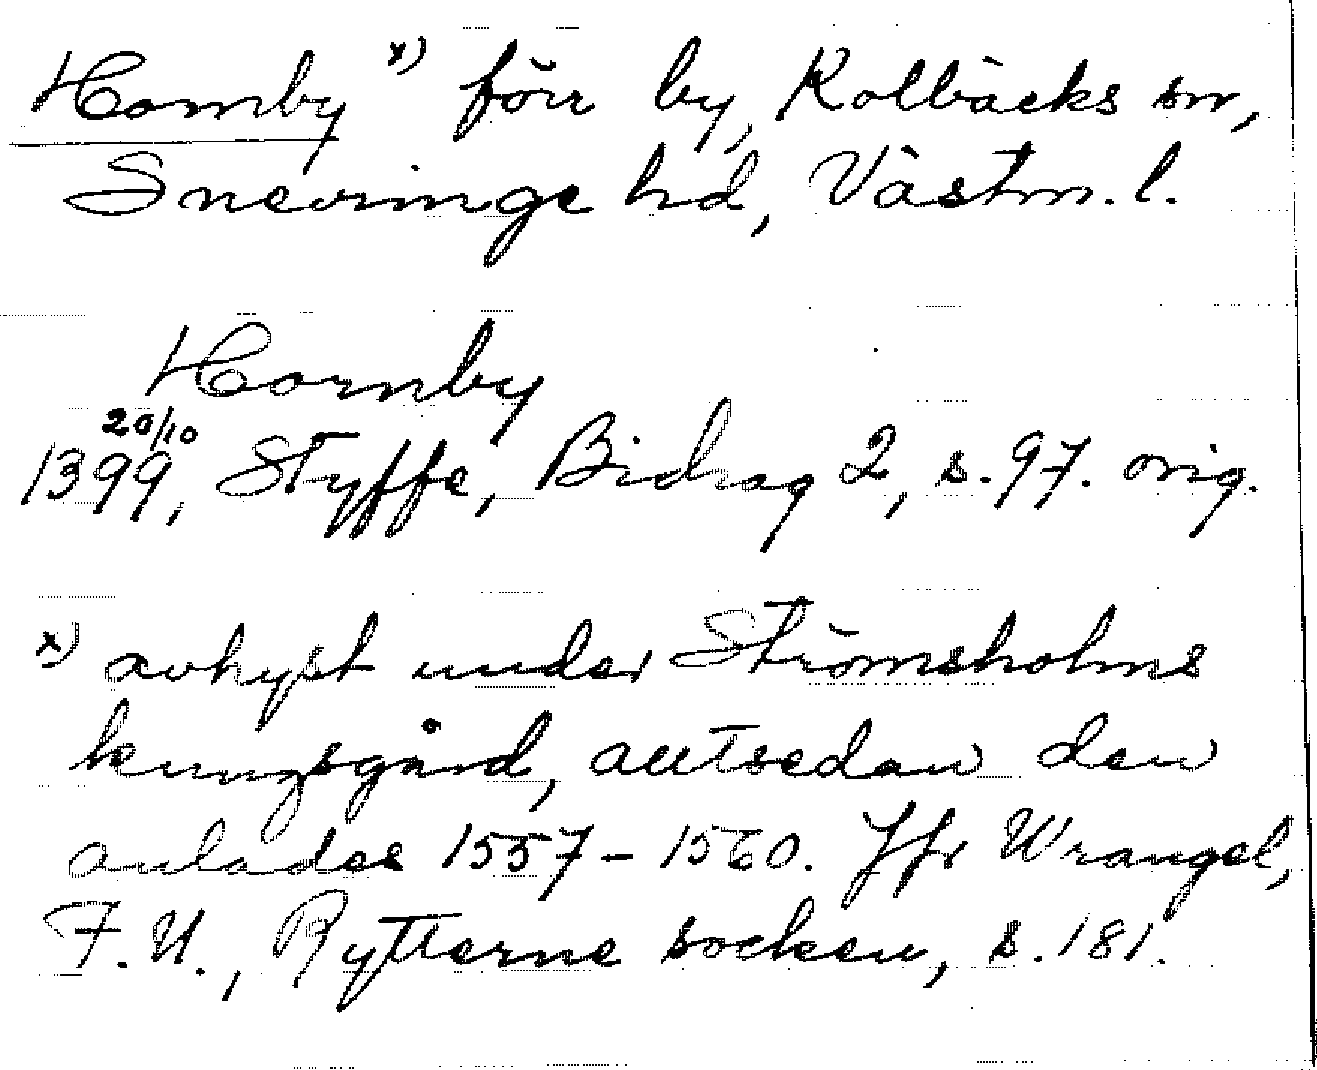 Hornby x) förr by, Kolbäcks sn,
Snevringe hd, Västm. l.
Hornby
20/10
1399, Styffe, Bidrag 2, s. 97. orig.
x) avhyst under Strömsholms
kungsgård, alltsedan den
anlades 1557-1560. Jfr Wrangel,
F. U., Rytterne socken, s. 181.